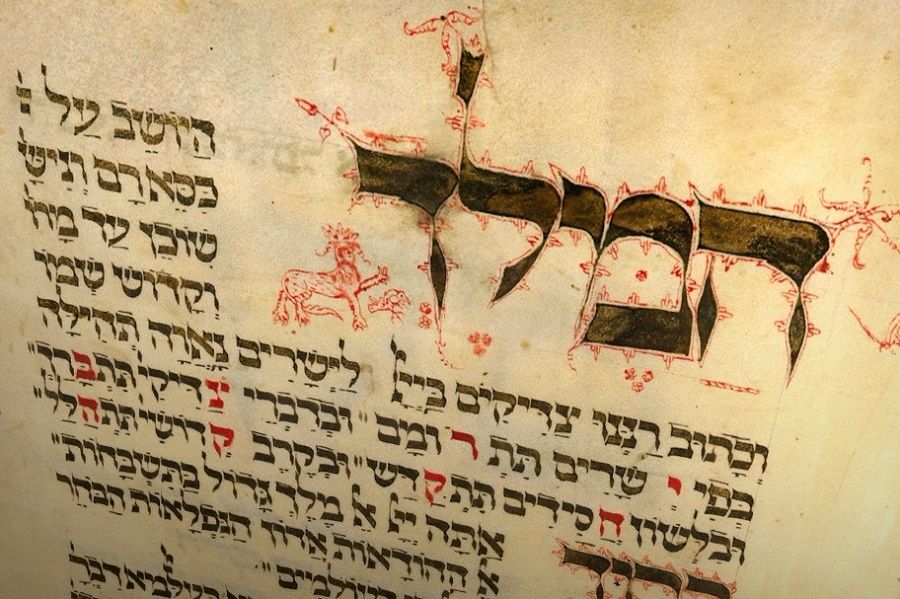 המלך
היושב על
כסא רם וניש
שוכן עד מרו
וקדוש שמו
וכתוב רננו צדיקים בייל לישרים נאוה תהילה
בפי ישרים תתרומם ובדברי צדיקי תתברך
ובלשון חסידים תתקדש ובקרב קדושי תתהלל
אתה ייל א מלך גדול בתשבחות
א ההודאות אדון הנפלאות הבוחר